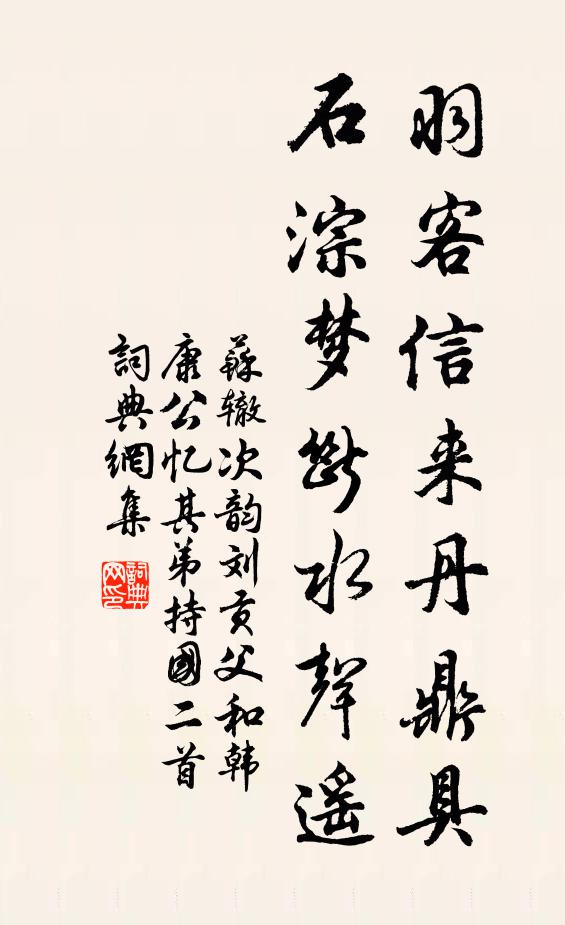 羽客信来丹鼎具
石淙梦断水声遥
蘇辙次韵刘贡父和韩
康公忆其弟持國二首
詞典網集
詞典網印